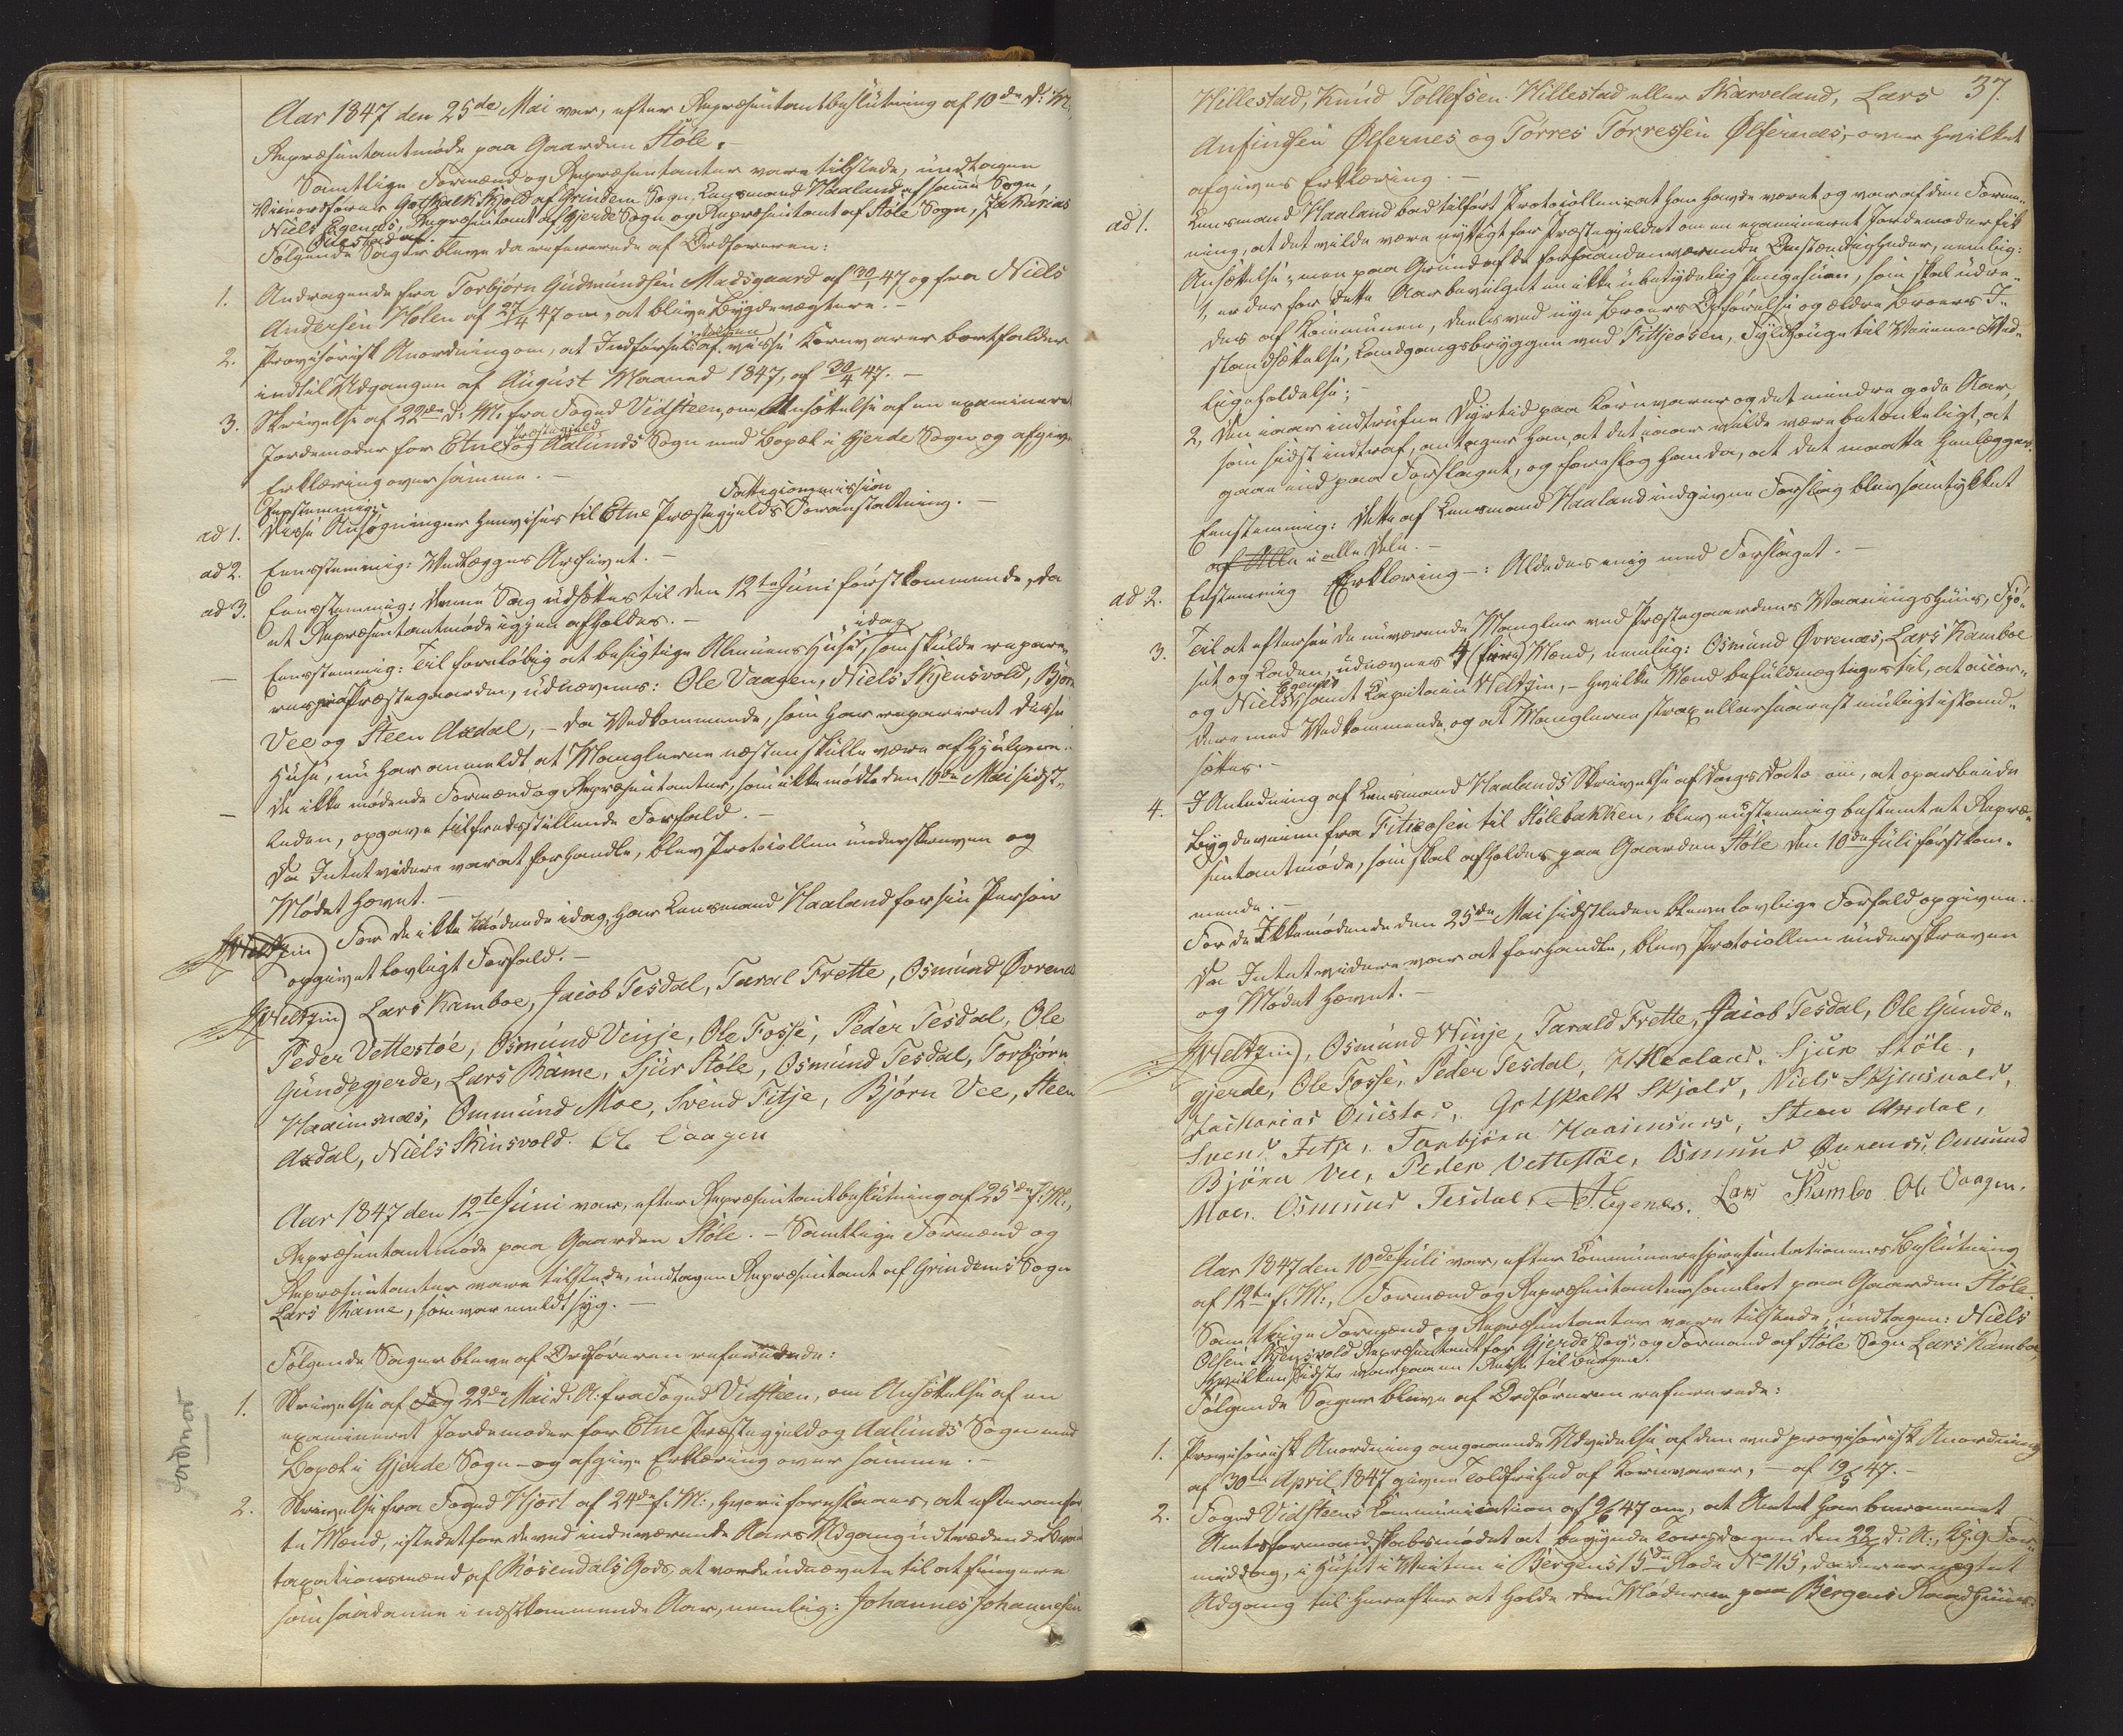 Aar 1847 den 25de Mai var, efter Repræsentantbeslutning af 10de d: M.,
Repræsentantmøde paa Gaarden Støle. -
Samtlige Formænd og Repræsentanter vare tilstede, undtagen
Viceordfører Gotskalk Skjold af Grindem Sogn, Lensmand Haaland af samme Sogn,
Niels Egenæs, Repræsentant af Gjerde Sogn og Repræsentant af Støle Sogn, Zakarias
Ouestad af.
Følgende Sager bleve da refererede af Ordføreren:
1. Andragende fra Torbjørn Gudmundsen Madsgaard af 30/ 47 og fra Niels
Andersen Molen af 27/4 47 om, at blive Bygdevægtere. -
2. Provisorisk Anordning om, at Indførsels tolden af visse Kornvarer bortfalder
indtil Udgangen af August Maaned 1847, af 30/4 47. -
3. Skrivelse af 22de d: M. fra Foged Vidsteen, om Ansættelse af en examineret
Jordemoder for Etne Præstegjeld og Aalunds Sogn med Bopæl i Gjerde Sogn og afgive
Erklæring over samme. -
Eenstemmig:
ad 1. Disse Ansøgninger henvises til Etne Præstegjelds Fattigcommission Foranstaltning. -
ad 2. Eenstemmig: Vedlægges Archivet. -
ad 3. Eenstemmig: Denne Sag udsættes til den 12te Juni førstkommende, da
et Repræsentantmøde igjen afholdes. -
- Eenstemmig: Til foreløbig at besigtige Almuens Huse, idag som skulde repare-
res paa Præstegaarden, udnævnes: Ole Vaagen, Niels Skjensvold, Bjørn
Vee og Steen Axdal, - da Vedkommende, som har repareret disse
Huse, nu har anmeldt at Manglerne næsten skulle være afhjulpene.
- De ikke mødende Formænd og Repræsentanter, som ikke mødte den 10de Mai sidst-
leden, opgave tilfredsstillende Forfald. -
Da Intet videre var at forhandle, blev Protocollen underskreven og
Mødet hævet. -
JWeltzin For de ikke Mødende idag, har Lensmand Haaland for sin Person
opgivet lovligt Forfald. -
JWeltzin Lars Kamboe, Jacob Tesdal, Taral Frette, Osmund Øvrenæs
Peder Vettestøe, Osmund Vinje, Ole Fosse, Peder Tesdal, Ole
Gundegjerde, Lars Rame, Sjur Støle, Osmund Tesdal, Torbjørn
Haaimsnæs, Ommund Moe, Svend Fitje, Bjørn Vee, Steen
Axdal, Niels Skinsvold. Ole Vaagen
Aar 1847 den 12te Juni var, efter Repræsentantbeslutning af 25de f: M.,
Repræsentantmøde paa Gaarden Støle. - Samtlige Formænd og
Repræsentanter vare tilstede, undtagen Repræsentant af Grindems Sogn
Lars Rame, som var meldt syg. -
Følgende Sager bleve af Ordføreren refererede:
Jordmor
1. Skrivelse af 22de Mai d: A: fra Foged Vidsteen, om Ansættelse af en
examineret Jordemoder for Etne Præstegjeld og Aalunds Sogn med
Bopæl i Gjerde Sogn - og afgive Erklæring over samme. -
2. Skrivelse fra Foged Hjort af 24de f: M:, hvori foreslaaes, at efteranfør
te Mænd, istedetfor de ved indeværende Aars Udgang udtrædende
taxationsmænd af Rosendals Gods, at vorde udnævnte til at fungere
som saadanne i næstkommende Aar, nemlig: Johannes Johannesen
37.
Hillestad, Knud Tollefsen Hillestad eller Skarveland, Lars
Anfindsen Ølfernes og Torres Torressen Ølfernæs, - over hvilket
afgives Erklæring. -
ad 1. Lensmand Haaland bad tilført Protocollen: at han havde været og var af den Forme-
ning, at det vilde være nyttigt for Præstegjeldet om en examineret Jordemoder fik
Ansættelse; men paa Grund af de forhaandenværende Omstændigheder, nemlig:
1, er der for dette Aar bevilget en ikke ubetydelig Pengesum, som skal udre-
des af Kommunen, deels ved nye Broers Opførelse og ældre Broers I-
standsættelse, Landgangsbryggen ved Fittjeosen,
ligeholdelse;
2, Den iaar indtrufne Dyrtid paa Kornvarer og det mindre gode Aar,
som sidst indtraf, antager han, at det iaar vilde være betænkeligt, at
gaae ind paa Forslaget, og foreslog han da, at det maatte henlægges.
Eenstemmig: Dette af Lensmand Haaland indgivne Forslag blev samtykket
af Alle i alle Dele. -
ad 2. Eenstemmig Erklæring -: Aldeles enig med Forslaget. -
3. Til at eftersee de nuværende Mangler ved Præstegaardens Vaaningshuus, Fjø-
set og Laden, udnævnes 4 (fire) Mænd, nemlig: Osmund Øvrenæs, Lars Kamboe
og Niels Egenæs, samt Kapitain Weltzin, - hvilke Mænd befuldmægtiges til, at accor-
dere med Vedkommende, og at Manglerne strax eller snarest muligt istand-
sættes. -
4. I Anledning af Lensmand Haalands Skrivelse af Dags Dato om, at oparbeide
Bygdeveien fra Fitjeosen til Stølebakken, blev eenstemmig bestemt et Repræ-
sentantmøde, som skal afholdes paa Gaarden Støle den 10de Juli førstkom-
mende. -
For de Ikkemødende den 25de Mai sidstleden bleve lovlige Forfald opgivne.
Da Intet videre var at forhandle, blev Protocollen underskreven
og Mødet hævet. -
JWeltzin, Osmund Winje, Tarald Frette, Jacob Tesdal, Ole Gunde-
gjerde, Ole Fosse, Peder Tesdal, Haaland. Sjur Støle,
Zacharias Ouestad, Gotskalk Skjold, Niels Skjensvold,
Svend Fitje, Torbjørn Haaimsnes, Steen Axdal,
Bjørn Vee, Peder Vettestøe, Osmund Øvrenæs, Omund
Moe. Osmund Tesdal, N Egenes. Lars Kambo Ole Vaagen.
Aar 1847 den 10de Juli var, efter Kommunerepræsentationens Beslutning
af 12te f. M:, Formænd og Repræsentanter samlet paa Gaarden Støle.
Samtlige Formænd og Repræsentanter vare tilstede, undtagen: Niels
Olsen Skjensvold Repræsentant for Gjerde Sogn og Formand af Støle Sogn Lars Kamboe,
hvilken Sidste var paa en Reise til Bergen.
Følgende Sager bleve af Ordføreren refererede:
1. Provisorisk Anordning angaaende Udvidelse af den ved provisorisk Anordning
af 30te April 1847 givne Toldfrihed af Kornvarer, - af 19/5 47. -
2. Foged Vidsteens Communication af 9/6 47 om, at Amtet har berammet
Amtsformandskabsmødet at begynde Torsdagen den 22 d: M:, Kl. 9 For-
middag, i Huset i Bergens 15de Rode No 115, da der er nægtet
Adgang til herefter at holde Møderne paa Bergens Raadhuus.